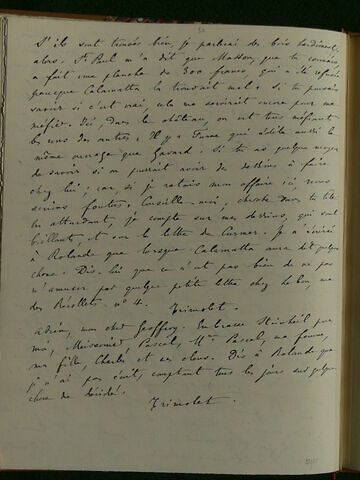 S'ils sont tournés bien, je parlerai des bois hardiment
alors. St Paul m'a dit que Masson, que tu connais,
a fait une planche de 300 francs, qui a été refusée
parceque Calamatta la trouvait mal. Si tu pouvais
savoir si c'est vrai, cela me servirait encore pour me
méfier. Ici, dans le château, on est tous méfiants
les uns des autres. Il y a Furne qui édite aussi le
même ouvrage que Gavard. Si tu as quelque moyen
de savoir si on pourrait avoir de dessins à faire
chez lui; car, si je ratais mon affaire ici, nous
serions foutus. Conseille-moi, cherche dans ta tête.
En attendant, je compte sur mes dessins, qui sont
brillants, et sur la lettre de Curmer. Je n'écrirai
à Rolande que lorsque Calamatta aura dit quelque
chose. Dis-lui que ce n'est pas bien de ne pas
m'amuser par quelque petite lettre chez Lebon, rue
des Récollets nº 4.
Trimolet.
Adieu, mon cher Geoffroy. Embrasse Steinheil pour
moi, Meissonier, Pascal, Mme Pascal, ma femme,
ma fille, Charles et ses élèves. Dis à Rolande que
je n'ai pas écrit, comptant tous les jours sur quelque
chose de décidé.
Trimolet.